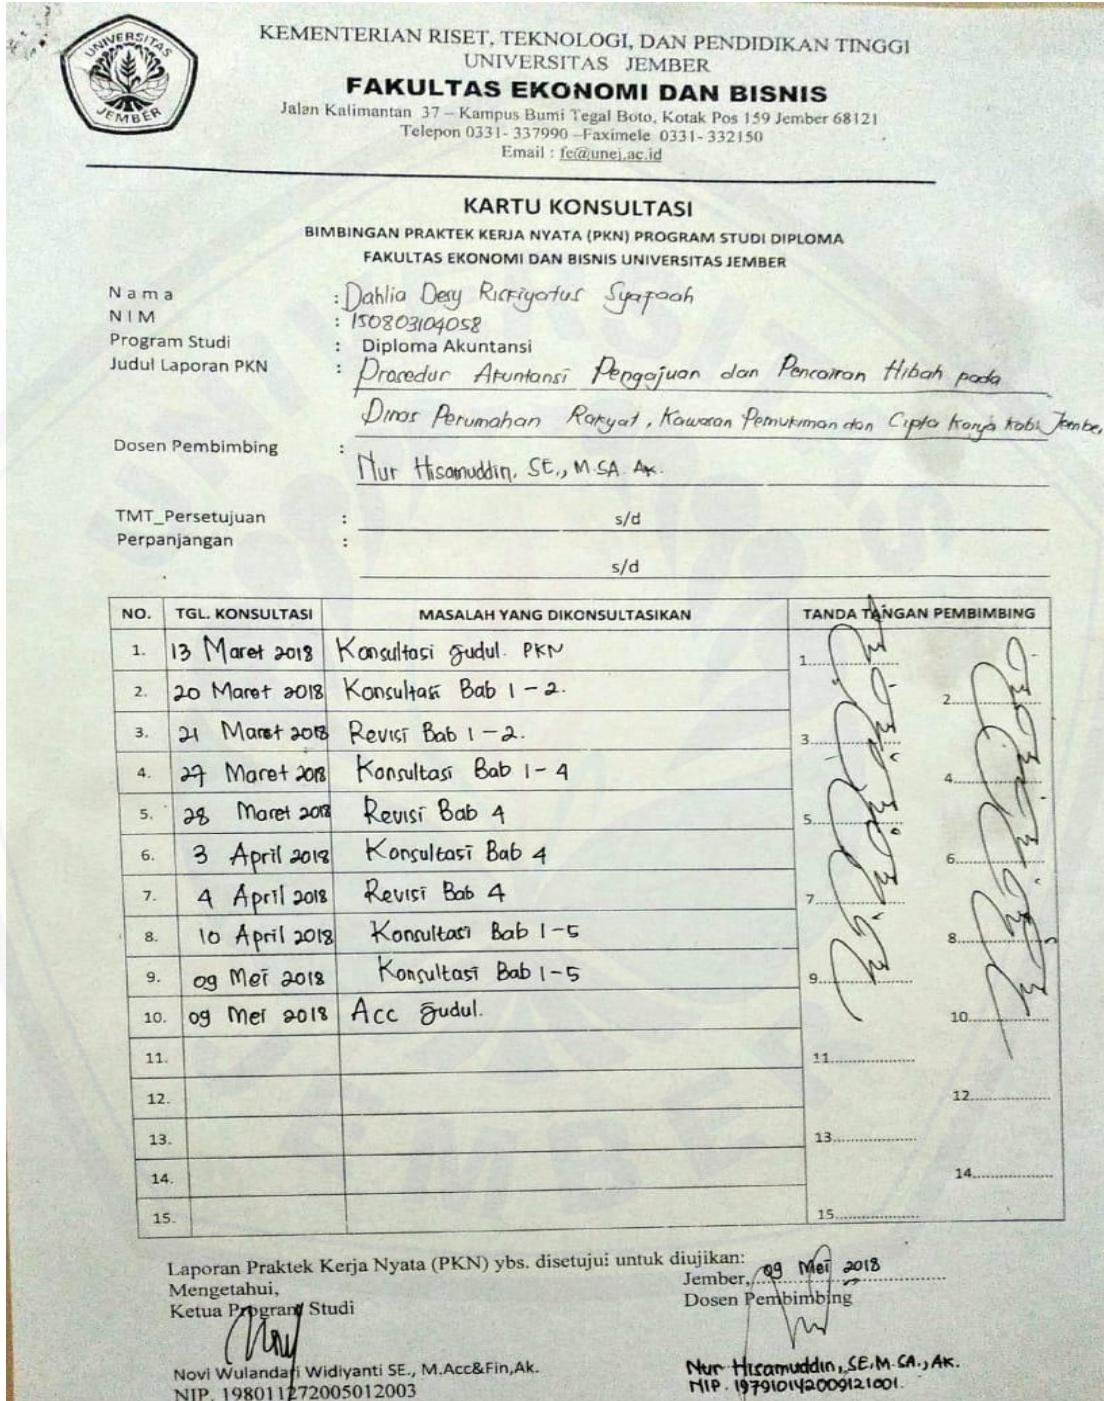 UNIVERSITAS
JEMBER
KEMENTERIAN RISET, TEKNOLOGI, DAN PENDIDIKAN TINGGI
UNIVERSITAS JEMBER
FAKULTAS EKONOMI DAN BISNIS
Jalan Kalimantan 37 – Kampus Bumi Tegal Boto, Kotak Pos 159 Jember 68121
Telepon 0331- 337990 –Faximele 0331- 332150
Email : fe@unej.ac.id
KARTU KONSULTASI
BIMBINGAN PRAKTEK KERJA NYATA (PKN) PROGRAM STUDI DIPLOMA
FAKULTAS EKONOMI DAN BISNIS UNIVERSITAS JEMBER
Nama : Dahlia Desy Riskiyatus Syafaah
NIM : 150803104058
Program Studi : Diploma Akuntansi
Judul Laporan PKN : Prosedur Akuntansi Pengajuan dan Pencairan Hibah pada
Dinas Perumahan Rakyat, Kawasan Pemukiman dan Cipta Karya Kab. Jember
Dosen Pembimbing : Nur Hisamuddin, SE., M.SA. Ak.
TMT_Persetujuan : s/d
Perpanjangan :
s/d
NO. TGL. KONSULTASI MASALAH YANG DIKONSULTASIKAN TANDA TANGAN PEMBIMBING
1. 13 Maret 2018 Konsultasi Judul. PKN 1.
2. 20 Maret 2018 Konsultasi Bab 1 - 2. 2.
3. 21 Maret 2018 Revisi Bab 1 - 2. 3.
4. 27 Maret 2018 Konsultasi Bab 1 - 4 4.
5. 28 Maret 2018 Revisi Bab 4 5.
6. 3 April 2018 Konsultasi Bab 4 6.
7. 4 April 2018 Revisi Bab 4 7.
8. 10 April 2018 Konsultasi Bab 1-5 8.
9. 09 Mei 2018 Konsultasi Bab 1-5 9.
10. 09 Mei 2018 Acc Judul. 10.
11. 11.
12. 12.
13. 13.
14. 14.
15. 15.
Laporan Praktek Kerja Nyata (PKN) ybs. disetujui untuk diujikan:
Mengetahui, Jember, 09 Mei 2018
Ketua Program Studi Dosen Pembimbing
Novi Wulandari Widiyanti SE., M.Acc&Fin,Ak. Nur Hisamuddin, SE, M.SA., AK.
NIP. 198011272005012003 NIP. 197910142009121001.